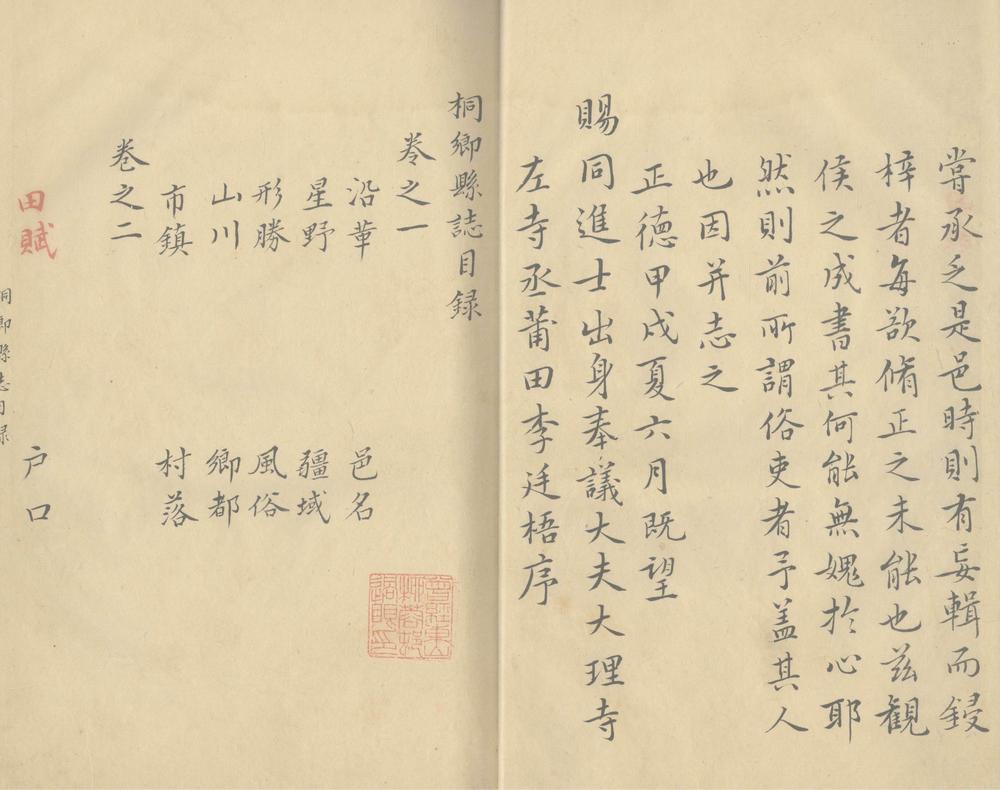 嘗承乏是邑時則有妄輯而鋟
梓者每欲脩正之未能也兹觀
侯之成書其何能無媿於心耶
然則前所謂俗吏者予盖其人
也因并志之
正德甲戌夏六月既望
賜同進士出身奉議大夫大理寺
左寺丞莆田李廷梧序
桐鄉縣誌目録
卷之一
沿革 邑名
星野 疆域
形勝 風俗
山川 鄉都
市鎮 村落
卷之二
田賦 户口
桐鄉縣志目録